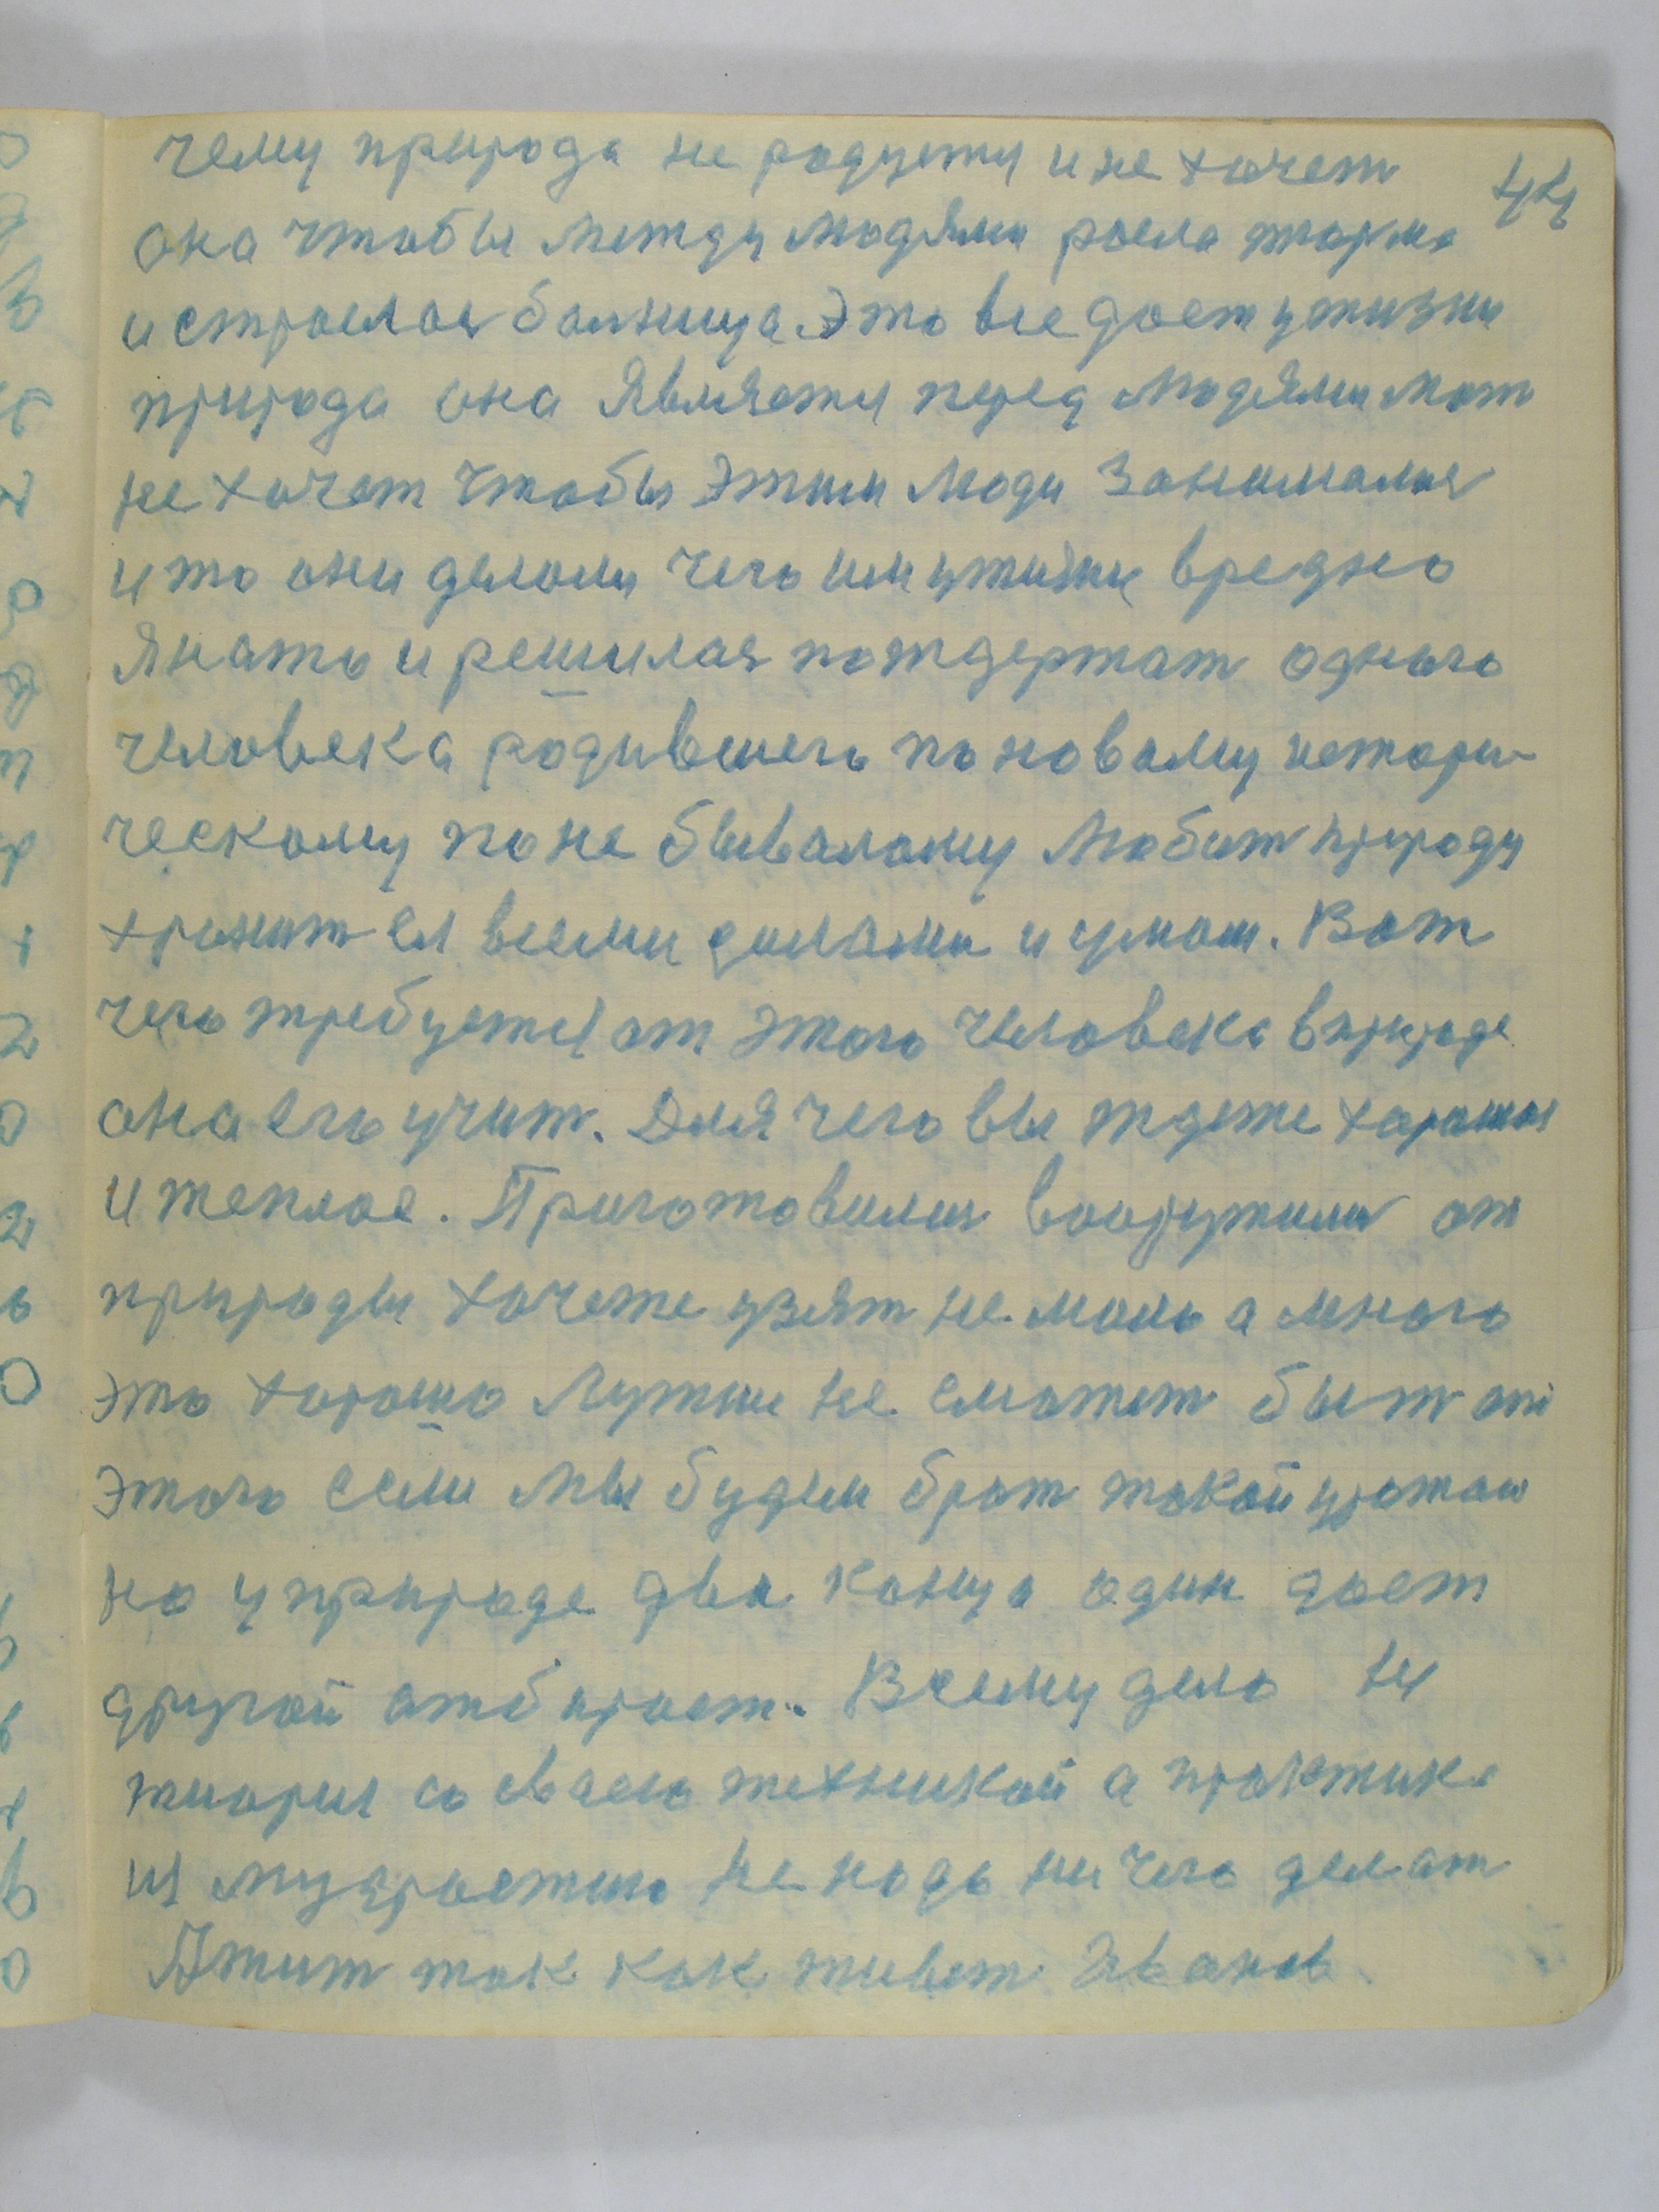 44
чему природа не радуетси и не хочет
она чтобы между людями расла тюрма
и строелас балница. Это все дает у жизни
природа она Является перед людями мат
не хочет чтобы этим люди Занималис
и то они делали чего им у жизни вредно
Янать и решилас пождержат одного
человека родившего по новому истори-
ческому по не бывалому любит природу
хронит ея всеми силами и умом. Вот
чего требуется от этого человека в природе
она его учит. Для чего вы ждете хорошая
и теплое. Приготовилис вооружилис от
природы хочете узят не мало а много
это хорошо Лутше не сможет быт от
этого если мы будем брат такой урожаи
но у природе два конца один дает
другой отбирает. Всему дело Ни
тиория со своею техникой а практика
из мудрастию не надо ни чего делат
Яжит так как живет Иванов